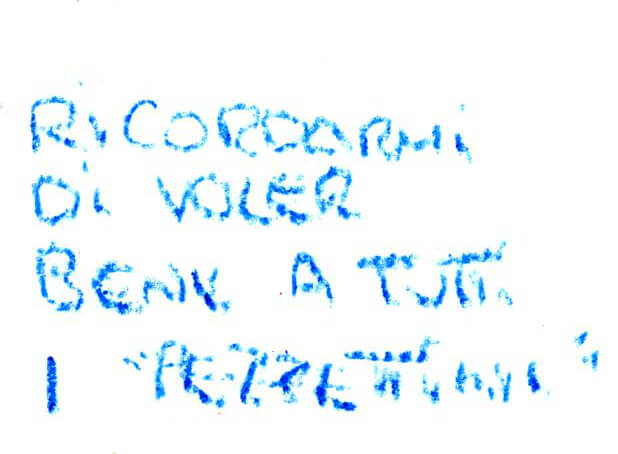 RiCORDARMi
Di VOLER
BENE A TUTTi
I